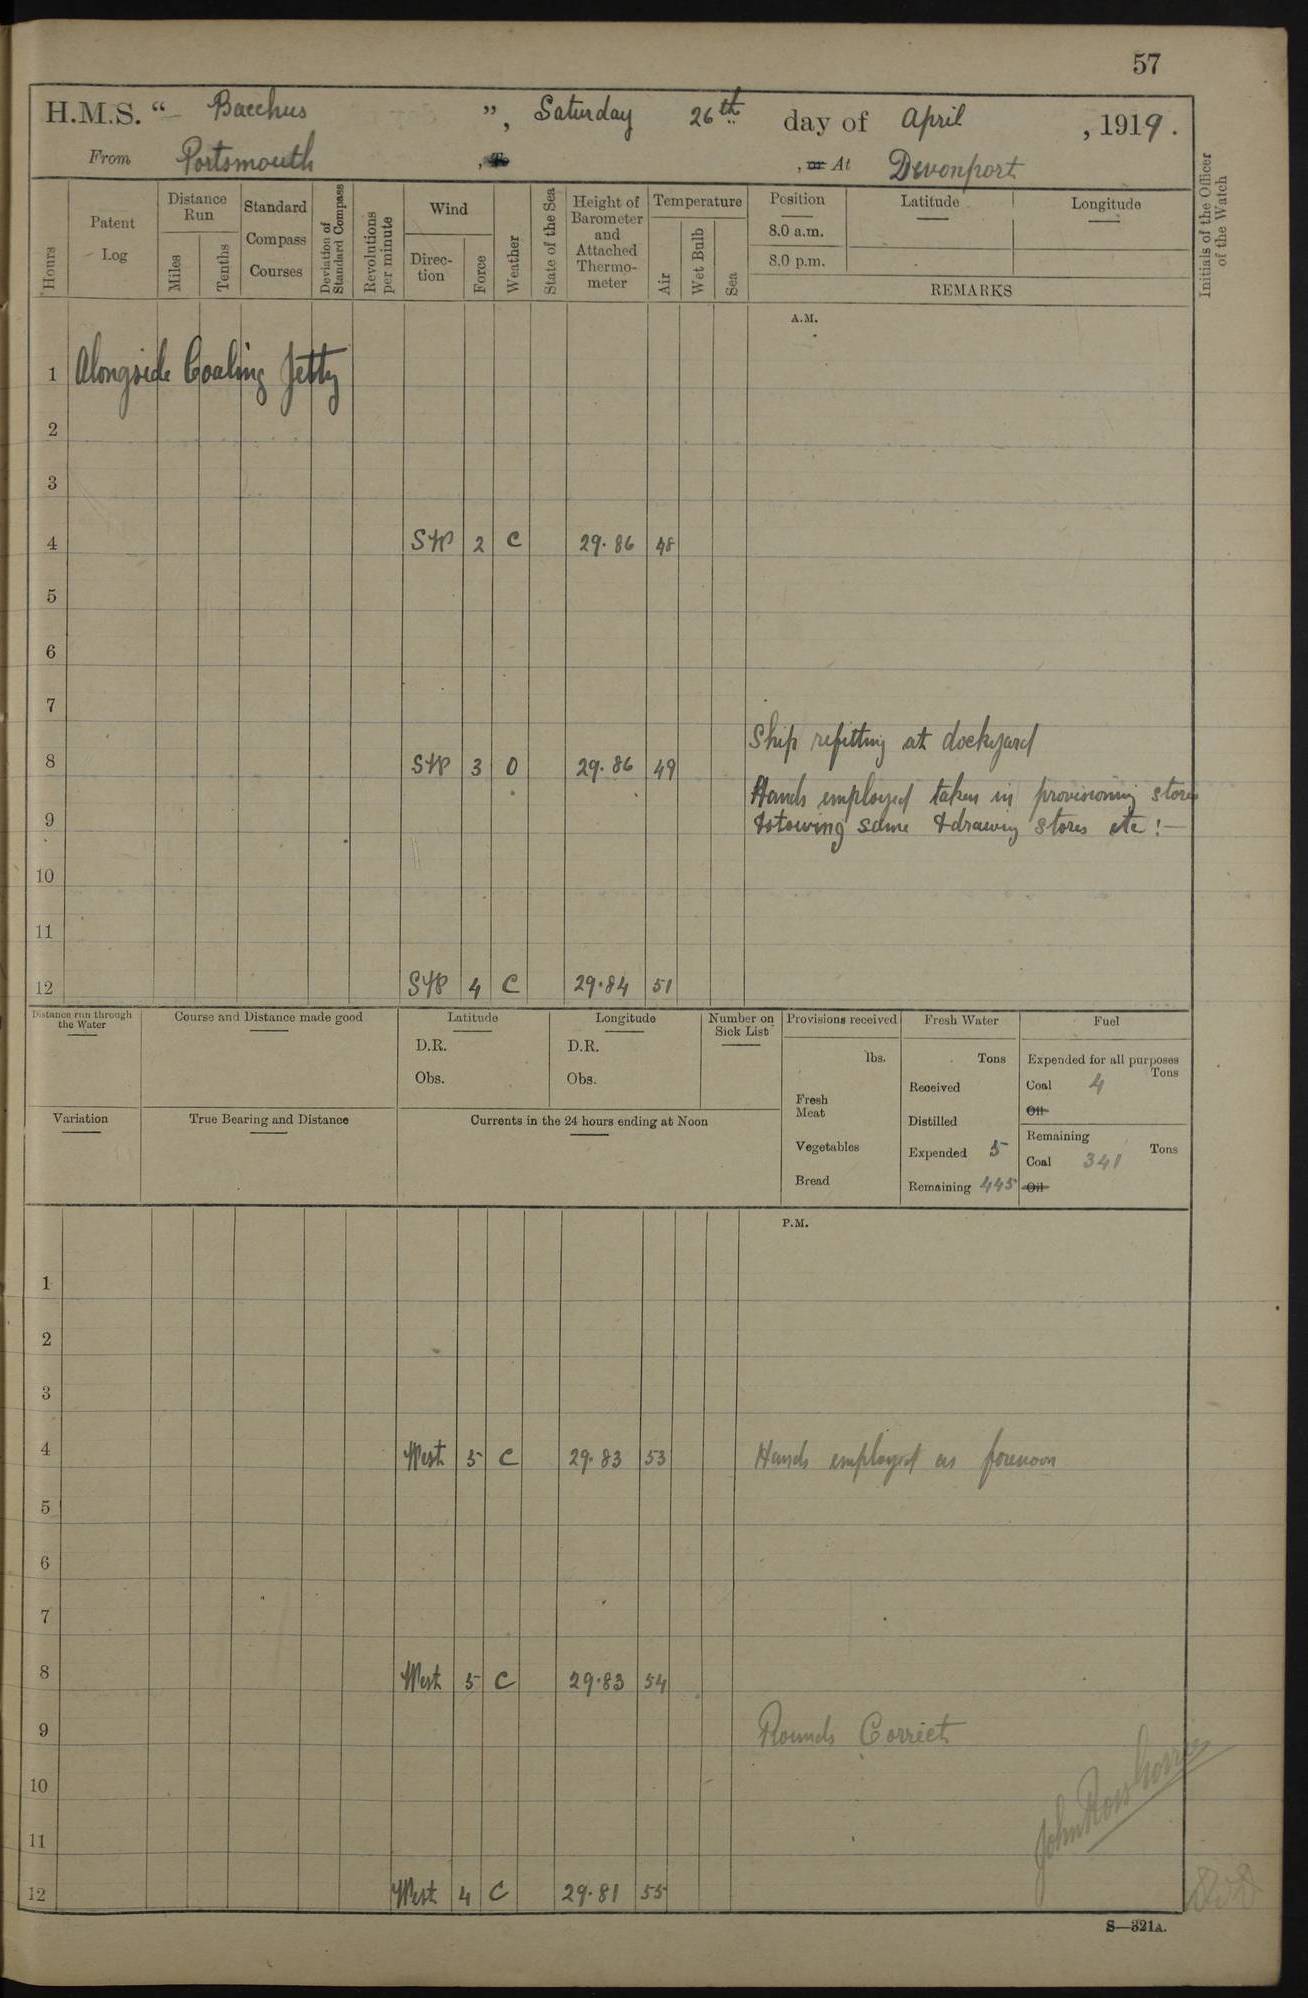 57
H.M.S. “ Bacchus ”, Saturday 26th day of April , 1919.
From Portsmouth , To , or At Devonport
Hours
Patent Log
Distance Run
Miles
Tenths
Standard Compass Courses
Deviation of Standard Compass
Revolutions per minute
Wind
Direc-tion
Force
Weather
State of the Sea
Height of Barometer and Attached Thermo-meter
Temperature
Air
Wet Bulb
Sea
Position
Latitude
Longitude
8.0 a.m.
8.0 p.m.
REMARKS
Initials of the Officer of the Watch
A.M.
1 Alongside Coaling Jetty
2
3
4 SW 2 C 29.86 48
5
6
7
Ship refitting at dockyard
8 SW 3 O 29.86 49
Hands employed taken in provisioning stores
9 & stowing same & drawing stores etc :—
10
11
12 SW 4 C 29.84 51
Distance run through the Water
Course and Distance made good
Latitude
D.R.
Obs.
Longitude
D.R.
Obs.
Number on Sick List
Provisions received
lbs.
Fresh Meat
Vegetables
Bread
Fresh Water
Tons
Received
Distilled
Expended 5
Remaining 445
Fuel
Expended for all purposes
Tons
Coal 4
Oil
Remaining
Tons
Coal 341
Oil
Variation
True Bearing and Distance
Currents in the 24 hours ending at Noon
P.M.
1
2
3
4 West 5 C 29.83 53 Hands employed as forenoon
5
6
7
8 West 5 C 29.83 54
9 Rounds Correct
10
11
John Ross
12 West 4 C 29.81 55
S—321A.